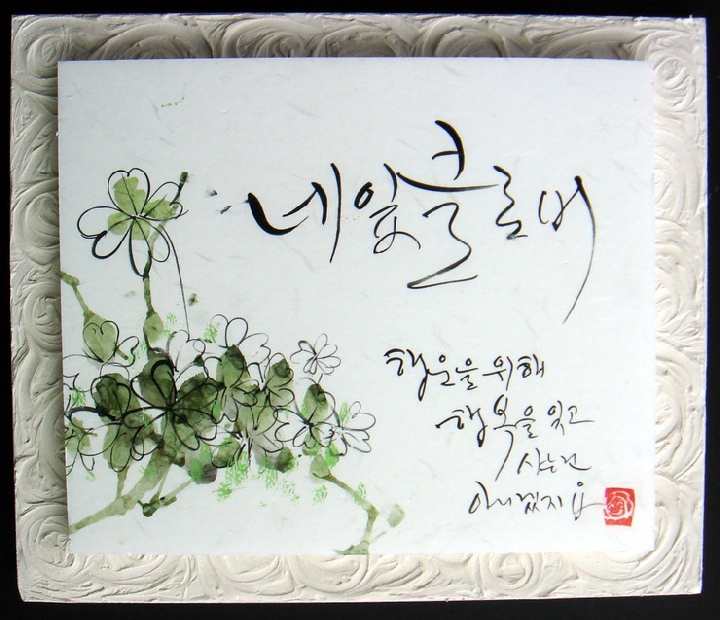 네잎클로버
행운을 위해
행복을 잊고
사는건
아니겠지요